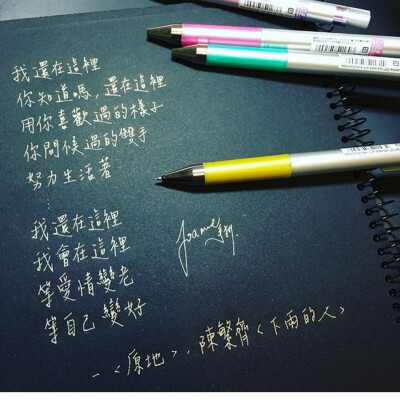 我還在這裡
你知道嗎，還在這裡
用你喜歡過的樣子
你問候過的雙手
努力生活著
⋮
我還在這裡
我會在這裡
等愛情變老
等自己變好
－〈原地〉．陳繁齊〈下雨的人〉